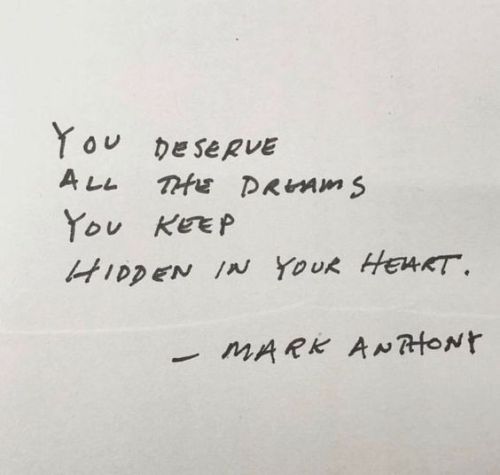 YOU DESERVE
ALL THE DREAMS
YOU KEEP
HIDDEN IN YOUR HEART.
- MARK ANTHONY